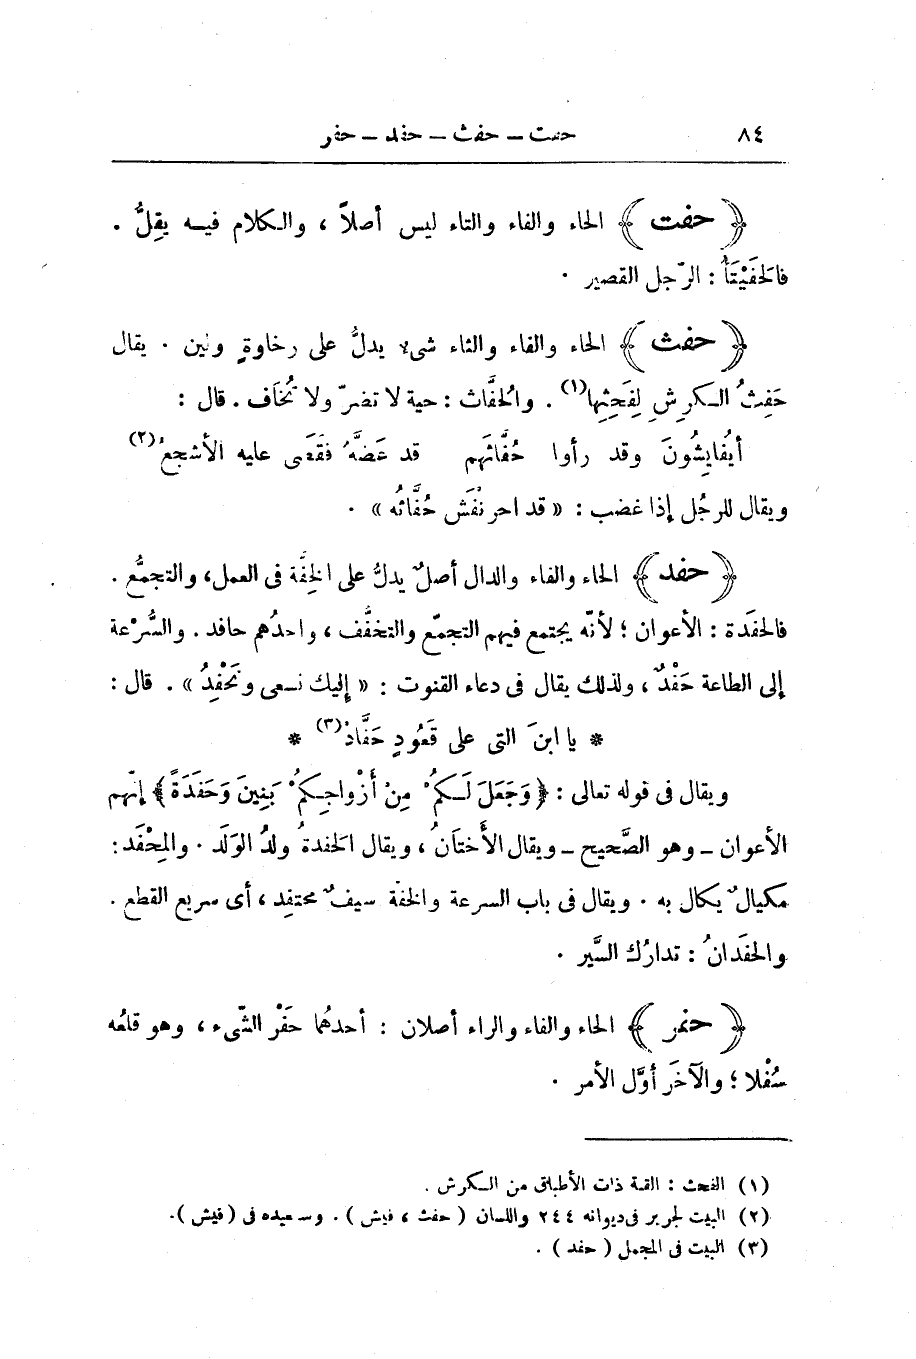 ٨٤
حفت – حفث – حفد – حفر
﴿ حفت ﴾ الحاء والفاء والتاء ليس أصلاً ، والكلام فيـه يقِلُّ .
فالحَفَيْتَأُ : الرّجل القصير .
﴿ حفث ﴾ الحاء والفاء والثاء شىء يدلُّ على رخاوةٍ ولين . يقال
حَفِثُ الـكرِشِ لِفَحِثِها(١) . والحُفَّاث : حية لا تضرّ ولا تُخَاف . قال :
أَيُفايِشُونَ وقد رأوا حُفَّاثَهم قد عَضَّهُ فقَضَى عليه الأشجعُ(٢)
ويقال للرجُل إذا غضب : « قد احرَنْفَش حُفَّاثُه » .
﴿ حفد ﴾ الحاء والفاء والدال أصلٌ يدلُّ على الخِفّة فى العمل، والتجمُّع .
فالحفَدة : الأعوان ؛ لأنّه يجتمع فيهم التجمّع والتخفُّف ، واحدُهم حافد . والسُّرْعة
إلى الطاعة حَفْدٌ ، ولذلك يقال فى دعاء القنوت : « إليك نـسعى ونَحْفِدُ » . قال :
* يا ابنَ التى على قَعُودٍ حَفَّادْ(٣) *
ويقال فى قوله تعالى : ﴿ وَجَعَلَ لَـكُمْ مِنْ أَزْواجِكُمْ بَنِينَ وَحَفَدَةً ﴾ إنّهم
الأعوان – وهو الصَّحيح – ويقال الأَختانُ ، ويقال الحَفدةُ ولدُ الوَلَد . والمِحْفَد :
مكيالٌ يكال به . ويقال فى باب السرعة والخفّة سيفٌ محتفِد ، أى سريع القطع .
والحفَدانُ : تدارُك السَّير .
﴿ حفر ﴾ الحاء والفاء والراء أصلان : أحدهُما حَفْر الشّىء ، وهو قلعُه
سُفْلا ؛ والآخَر أوّل الأمر .
(١) الفحث : القبة ذات الأطباق من الـكرش .
(٢) البيت لجرير فى ديوانه ٣٤٤ واللسان ( حفث ، فيش ) . وسـعيده فى ( فيش ).
(٣) البيت فى المجمل ( حفد ) .